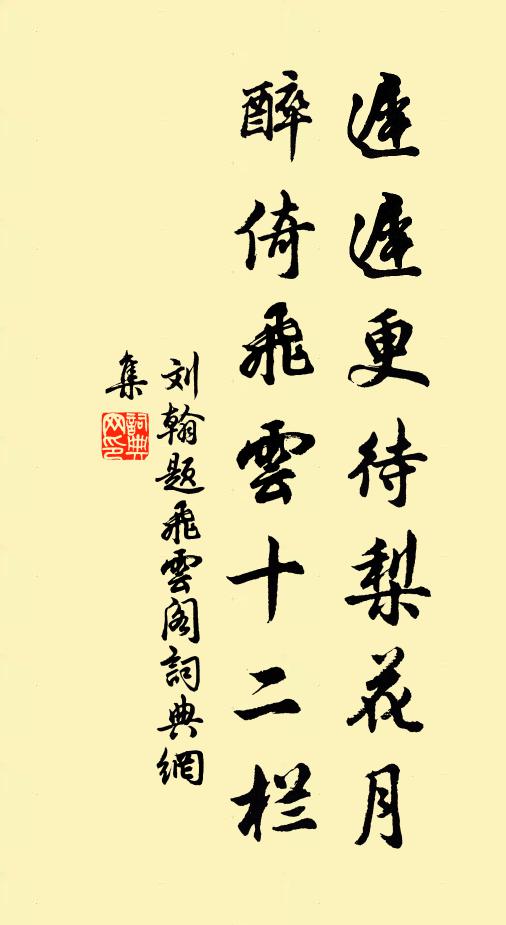 遲遲更待梨花月
醉倚飛雲十二栏
刘翰題飛雲阁詞典網
集
詞典
网印